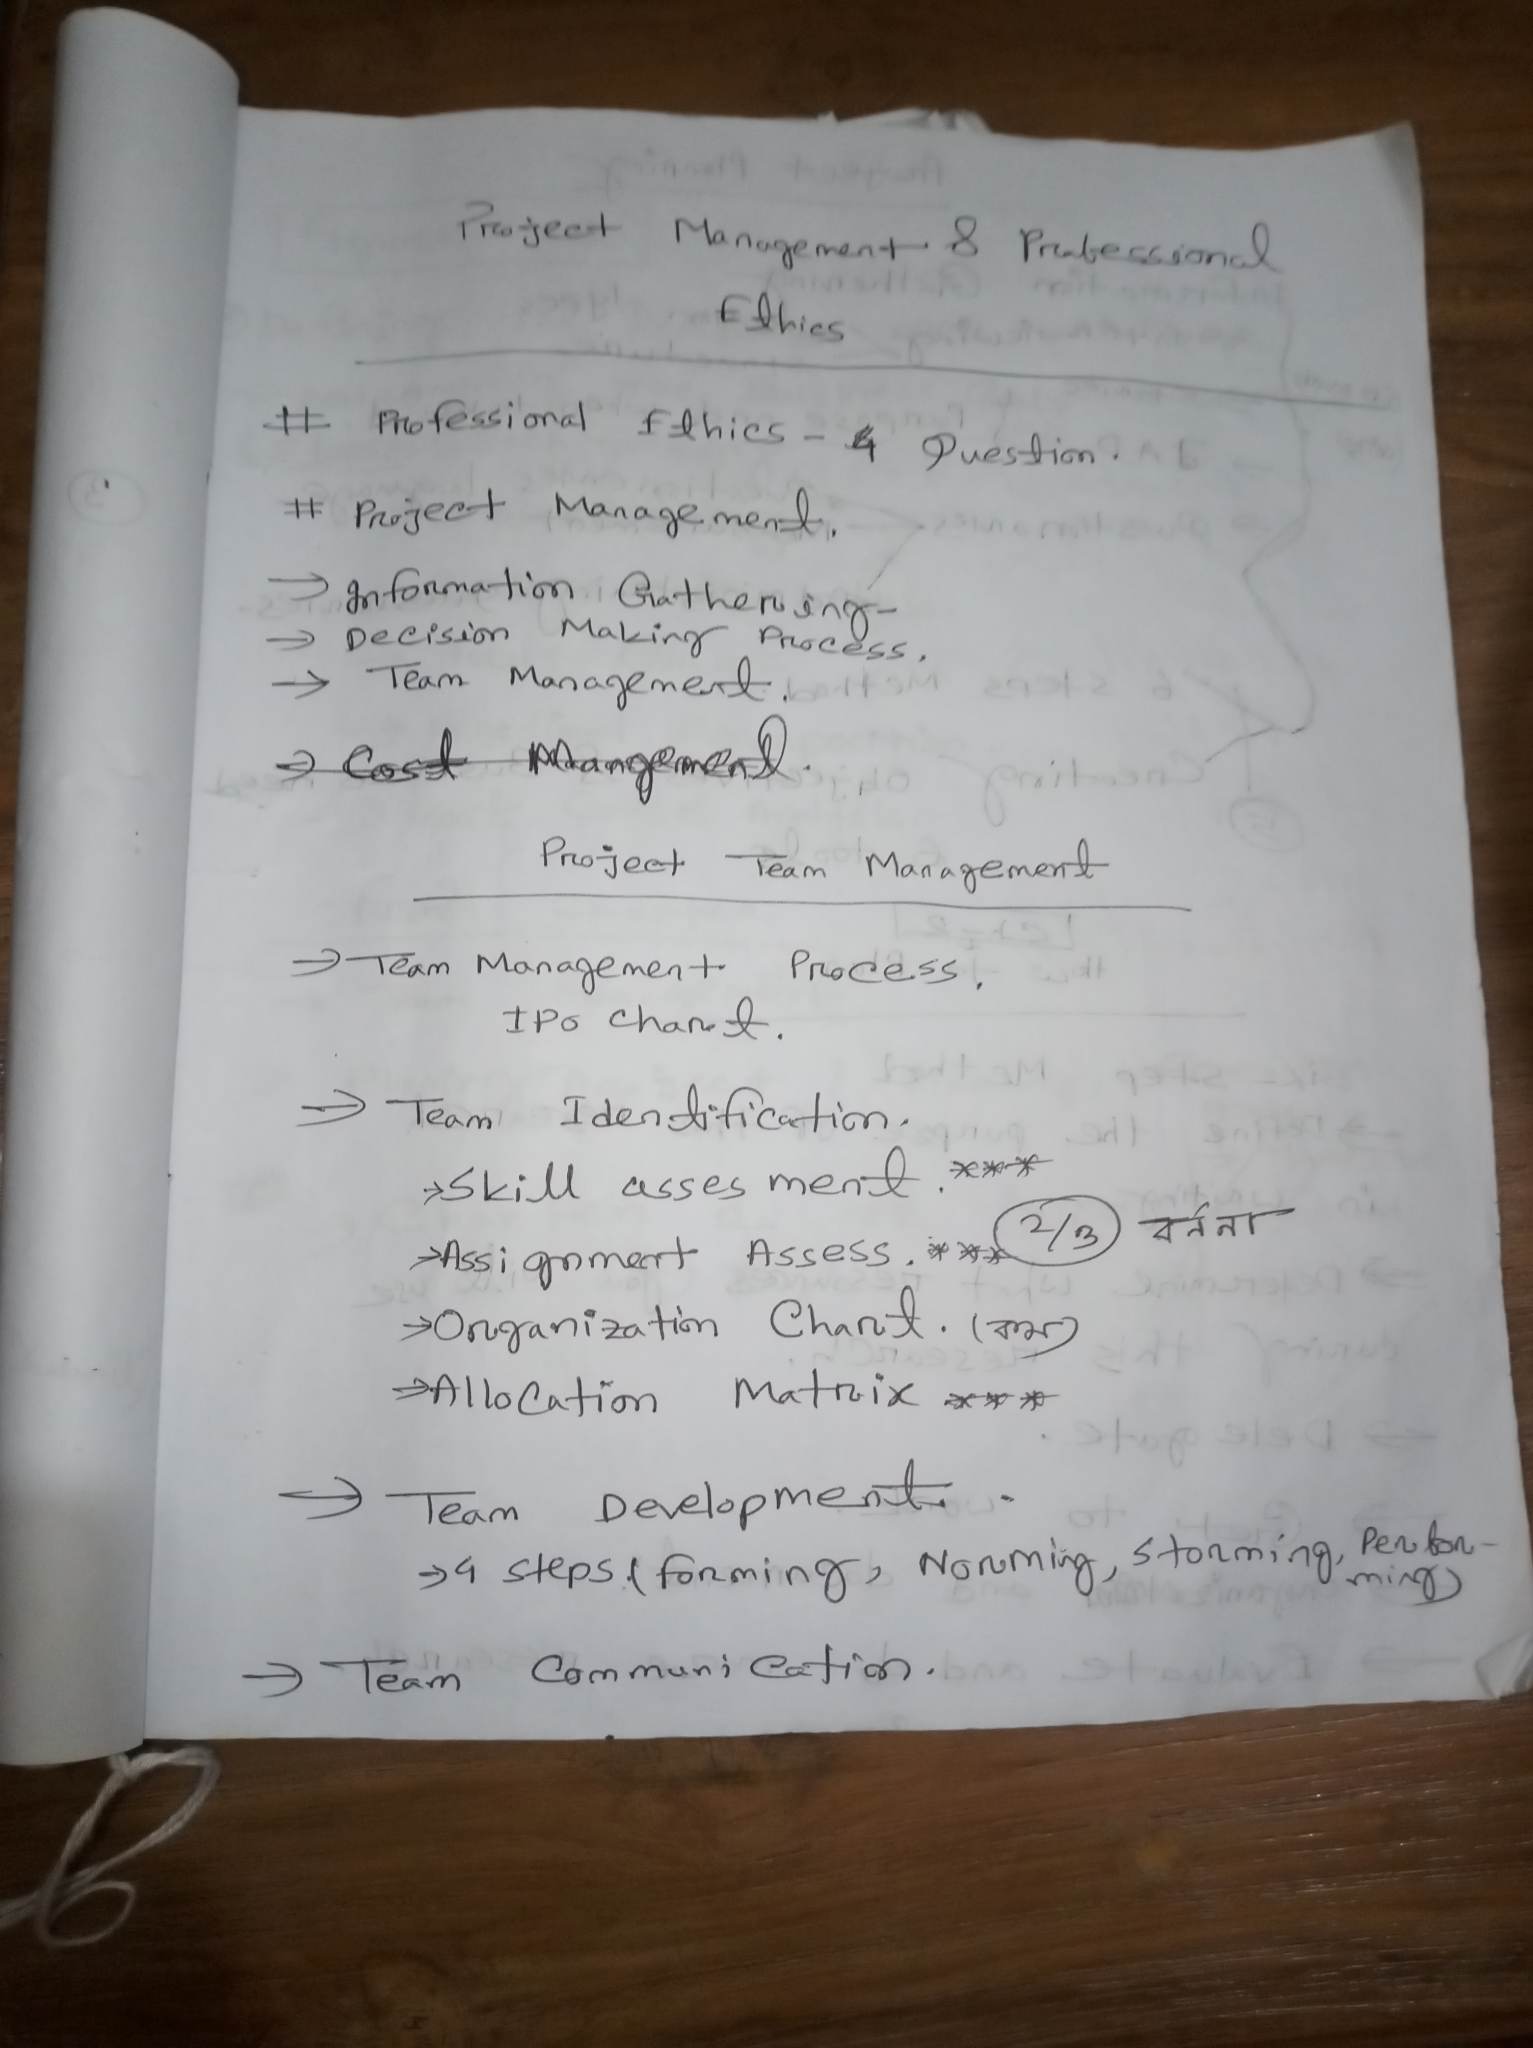 Project Management & Professional
Ethics
# Professional Ethics - 4 Question.
# Project Management.
→ Information Gathering-
→ Decision Making Process.
→ Team Management.
→ Cost Mangement.
Project Team Management
→ Team Management Process.
IPO Chart.
→ Team Identification.
→ Skill assesment. ***
→ Assignment Assess. *** 2/3 বর্ননা
→ Organization Chart. (কম)
→ Allocation Matrix ***
→ Team Development.
→ 4 steps (forming, Norming, Storming, Perfor-
ming)
→ Team Communication.